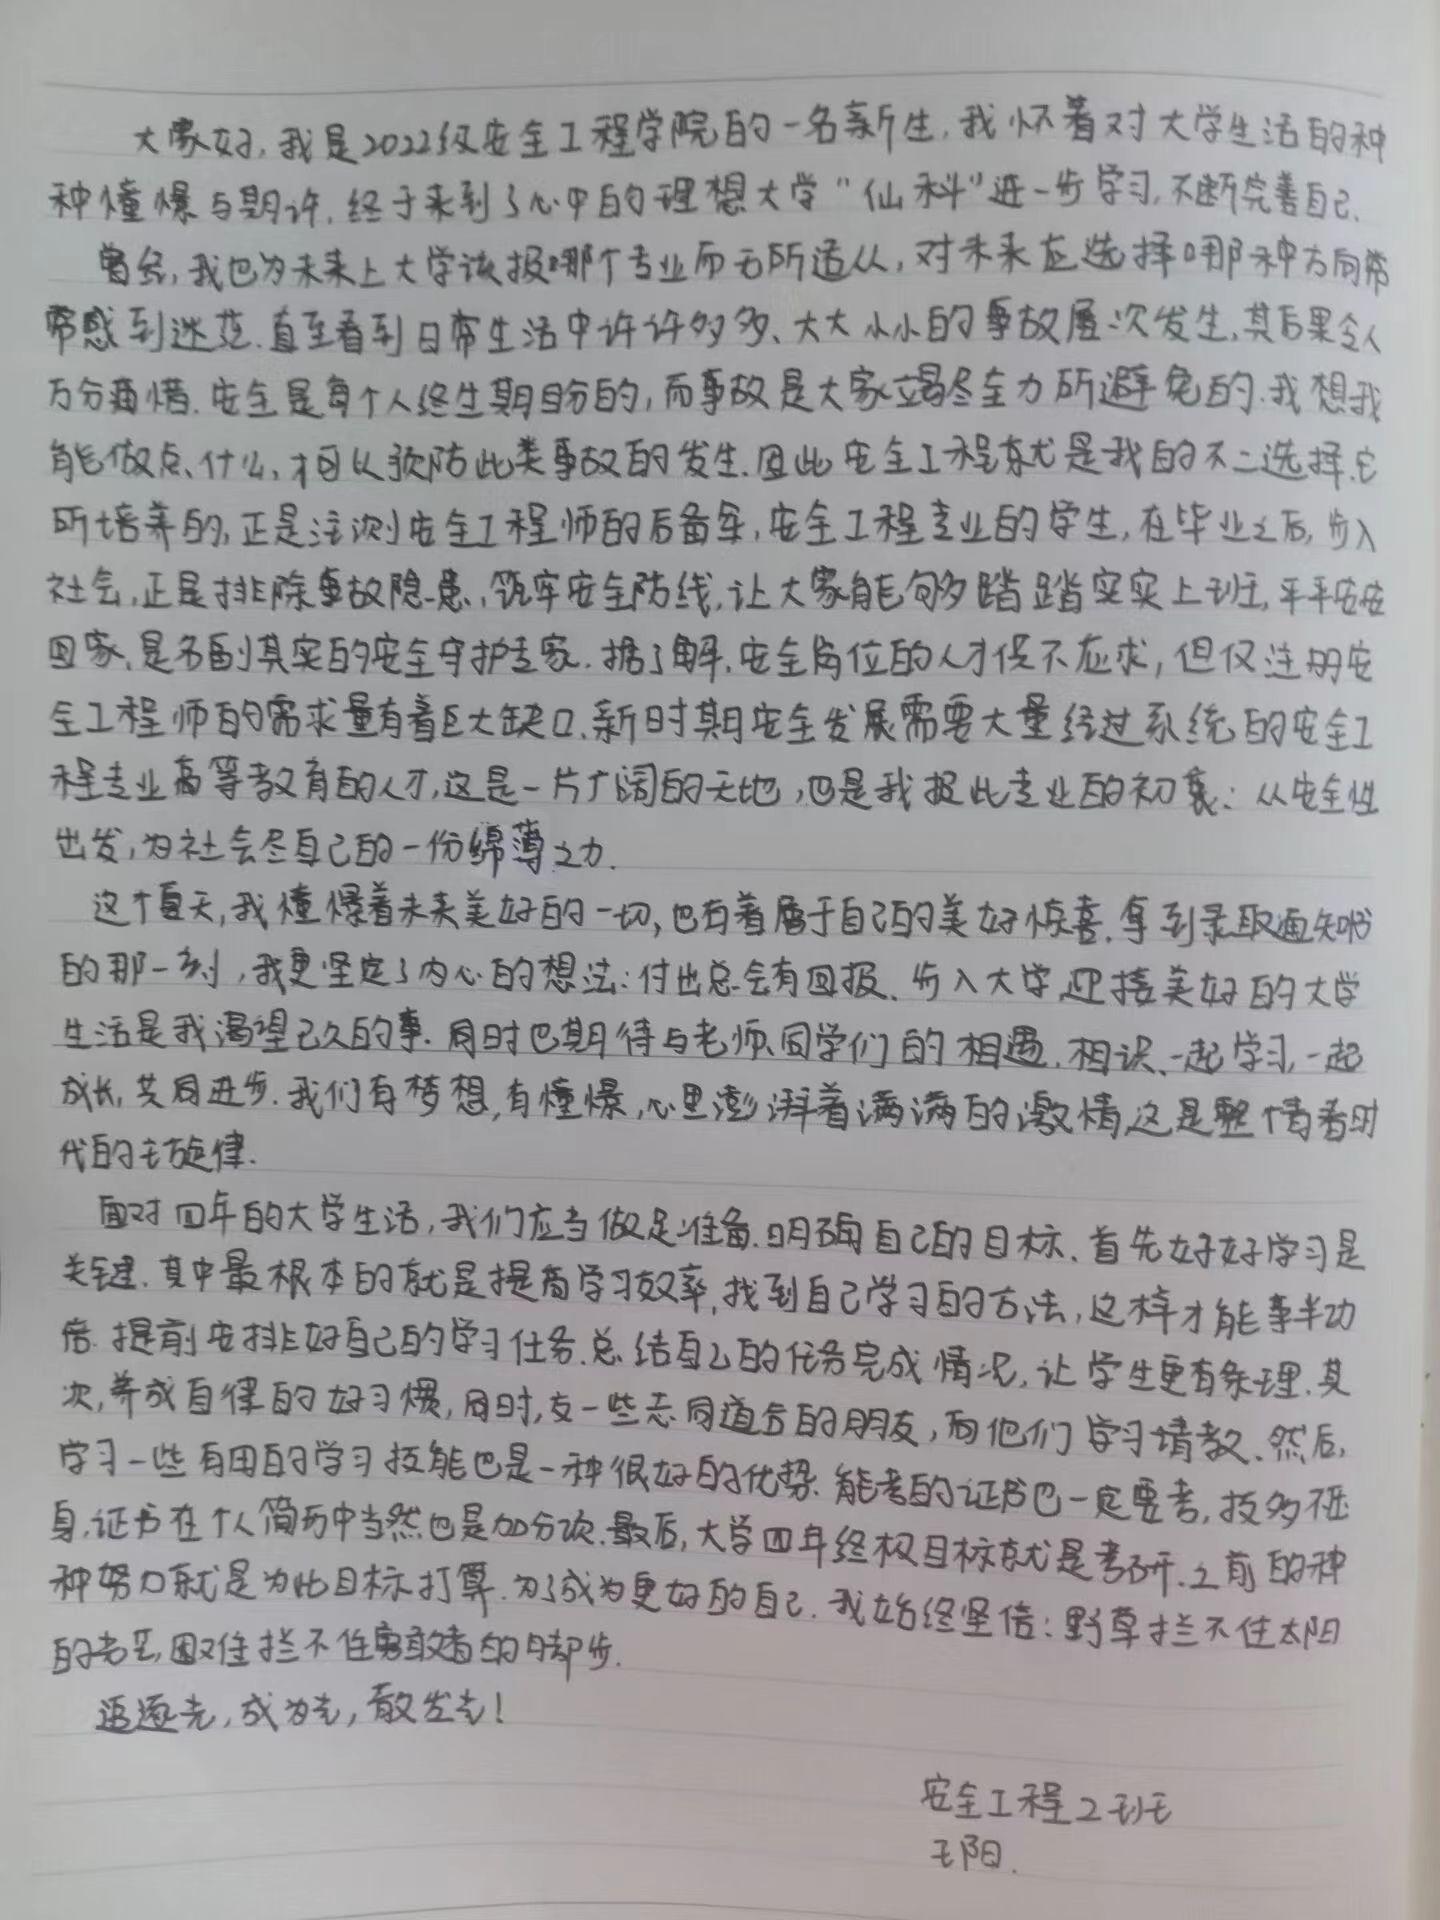 大家好,我是2022级安全工程学院的一名新生,我怀着对大学生活的种
种憧憬与期许,终于来到了心中的理想大学“仙科”进一步学习,不断完善自己.
曾经,我也为未来上大学该报哪个专业而无所适从,对未来应选择哪种方向常
常感到迷茫.直至看到日常生活中许许多多、大大小小的事故屡次发生,其后果令人
万分痛惜.安全是每个人终生期盼的,而事故是大家竭尽全力所避免的.我想我
能做点、什么,才可以预防此类事故的发生.因此安全工程就是我的不二选择.它
所培养的,正是注测安全工程师的后备军,安全工程专业的学生,在毕业之后,步入
社会,正是排除事故隐患,筑牢安全防线,让大家能够踏踏实实上班,平平安安
回家,是名副其实的安全守护专家.据了解,安全岗位的人才供不应求,但仅注册安
全工程师的需求量有着巨大缺口.新时期安全发展需要大量经过系统的安全工
程专业高等教育的人才,这是一片广阔的天地,也是我报此专业的初衷:从安全性
出发,为社会尽自己的一份绵薄之力.
这个夏天,我憧憬着未来美好的一切,也有着属于自己的美好惊喜.拿到录取通知书
的那一刻,我更坚定了内心的想法:付出总会有回报.步入大学,迎接美好的大学
生活是我渴望已久的事.同时也期待与老师、同学们的相遇、相识、一起学习,一起
成长,共同进步.我们有梦想,有憧憬,心里澎湃着满满的激情,这是整个青春时
代的主旋律.
面对四年的大学生活,我们应当做足准备.明确自己的目标.首先好好学习是
关键.其中最根本的就是提高学习效率,找到自己学习的方法,这样才能事半功
倍.提前安排好自己的学习任务.总结自己的任务完成情况,让学生更有条理.其
次,养成自律的好习惯,同时,交一些志同道合的朋友,向他们学习请教.然后,
学习一些有用的学习技能也是一种很好的优势.能考的证书也一定要考,技多不压
身,证书在个人简历中当然也是加分次.最后,大学四年终极目标就是考研.之前的种
种努力就是为此目标打算.为了成为更好的自己.我始终坚信:野草拦不住太阳
的光芒,困难拦不住勇敢者的脚步.
追逐光,成为光,散发光!
安全工程2班
王阳.